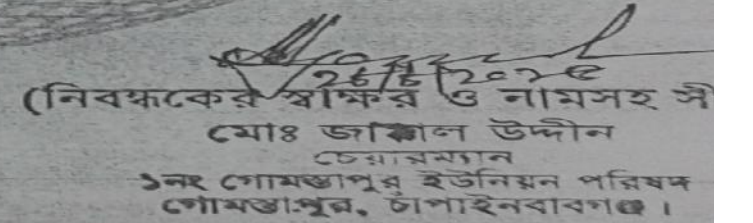 (নিবন্ধকের স্বাক্ষর ও নামসহ সী
মোঃ জামাল উদ্দীন
চেয়ারম্যান
১নং গোমস্তাপুর ইউনিয়ন পরিষদ
গোমস্তাপুর, চাঁপাইনবাবগঞ্জ।